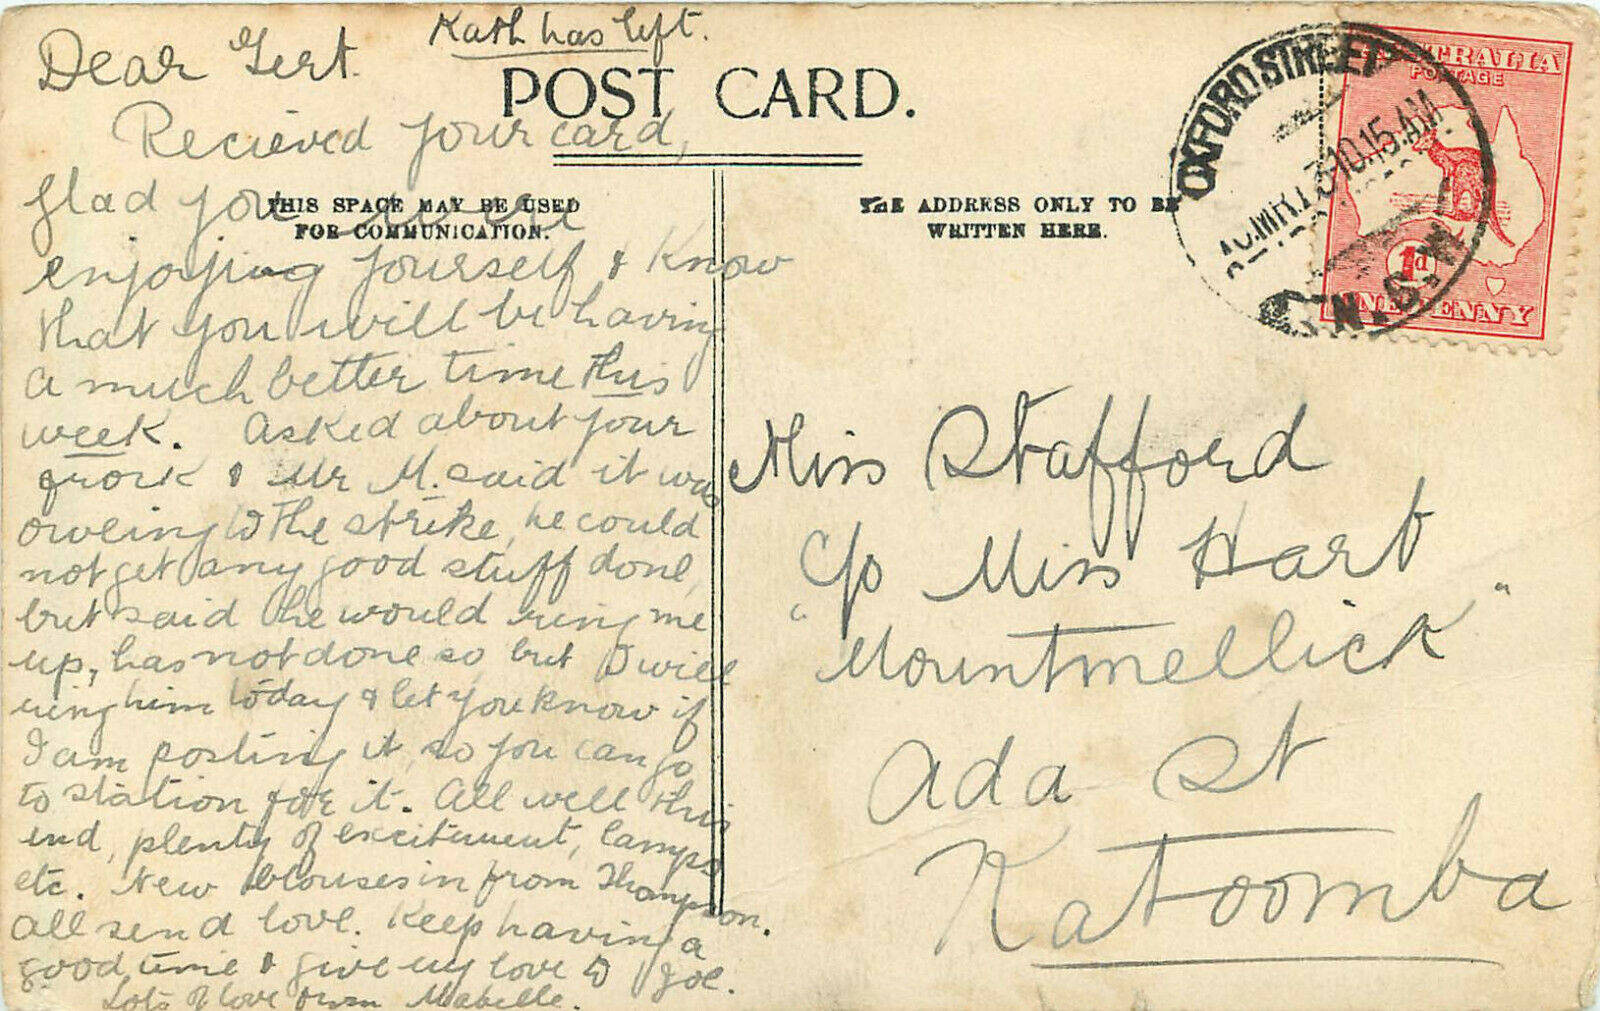 Kath has left.
Dear Gert.
POST CARD.
Recieved your card,
THIS SPACE MAY BE USED
FOR COMMUNICATION.
glad you were
enjoying yourself & know
that you will be having
a much better time this
week. Asked about your
frock & Mr M. said it was
oweing to the strike, he could
not get any good stuff done,
but said he would ring me
up, has not done so but I will
ring him today & let you know if
I am posting it, so you can go
to station for it. All well this
end, plenty of excitement, lamps
etc. New blouses in from Thompson.
All send love. Keep having a
good time & give my love to Joe.
Lots of love from Mabelle.
THE ADDRESS ONLY TO BE
WRITTEN HERE.
OXFORD STREET
10.15 AM
N.S.W
AUSTRALIA
POSTAGE
1d
ONE PENNY
Miss Stafford
c/o Miss Hart
"Mountmellick"
Ada St
Katoomba